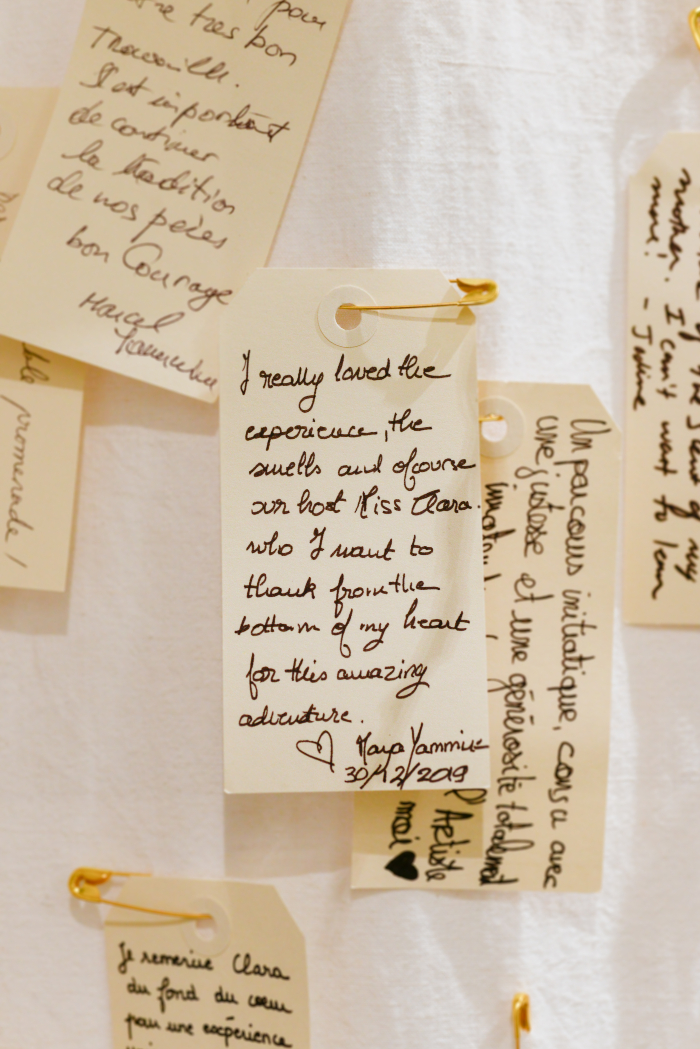 pour
tres bon
Travaille.
Il est important
de continuer
la tradition
de nos pères
bon Courage
Marcel
promenade !
I really loved the
experience, the
smells and ofcourse
our host Miss Clara.
who I want to
thank from the
bottom of my heart
for this amazing
adventure.
♡ Maya Yammine
30/12/2019
Un parcours initiatique, conçu avec
une justesse et une générosité totalement
L'Artiste
moi ♥
of my
mother. I can't want to learn
more!
- Joline
Je remercie Clara
du fond du coeur
pour une expérience